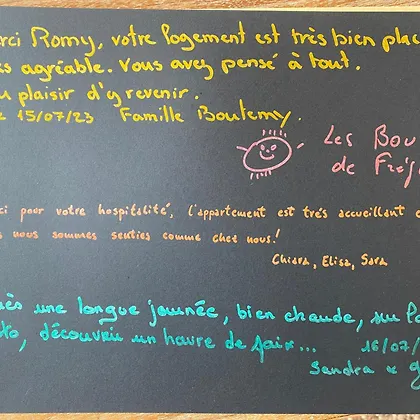 rci Romy, votre logement est très bien plac
s agréable. Vous avez pensé à tout.
u plaisir d'y revenir.
e 15/07/23 Famille Boutemy.
Les Bou
de Fréj
ci pour votre hospitalité, l'appartement est très accueillant
s nous sommes senties comme chez nous!
Chiara, Elisa, Sara
ès une longue journée, bien chaude, su
to, découvrir un havre de paix... 16/07/
Sandra &